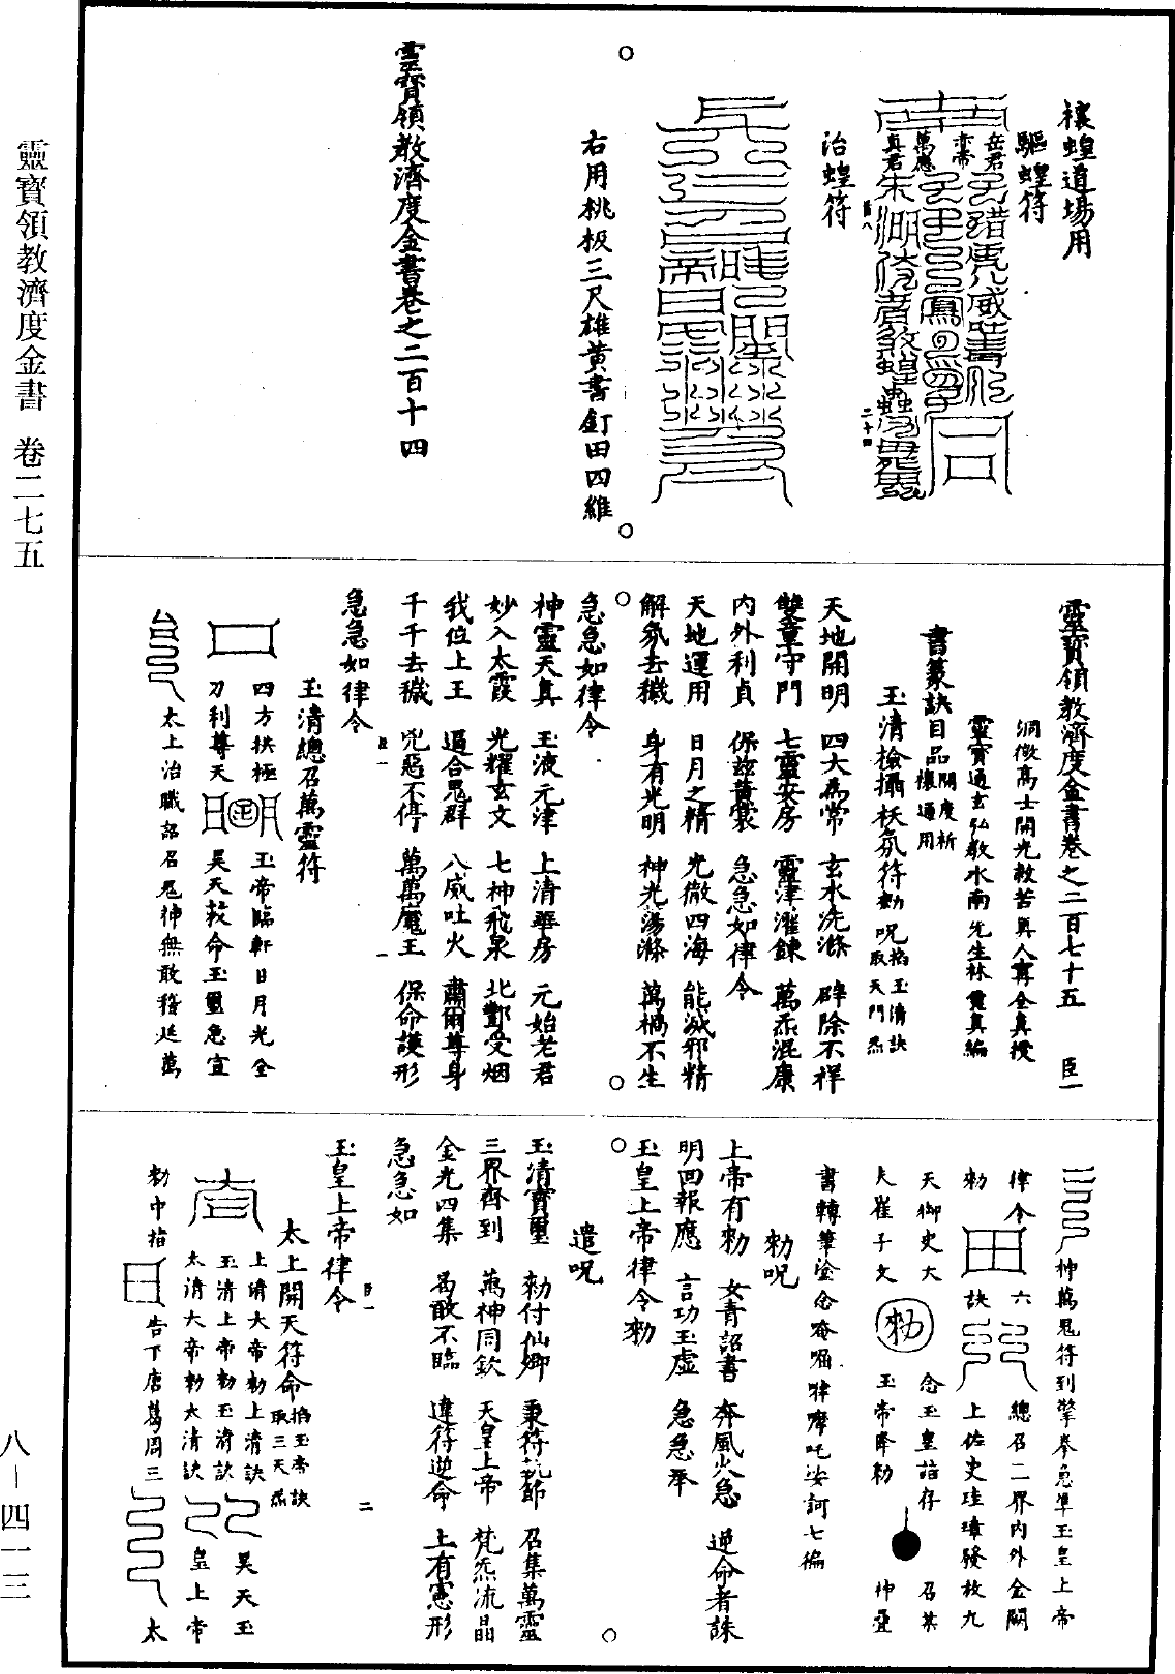 禳蝗道場用
驅蝗符
岳君
赤帝
萬應
真君
治蝗符
右用桃板三尺雄黃書釘田四維
靈寶領教濟度金書卷之二百十四
靈寶領教濟度金書卷之二百七十五 臣一
洞微高士開光救苦真人甯全真授
靈寶通玄弘教水南先生林靈真編
書篆訣目品開度祈禳通用
玉清檢攝祅氛符勑呪掐玉清訣取天門炁
天地開明 四大為常 玄水洗滌 辟除不祥
雙童守門 七靈安房 靈津濯鍊 萬炁混康
內外利貞 保茲黃裳 急急如律令
天地運用 日月之精 光徹四海 能滅邪精
解氛去穢 身有光明 神光蕩滌 萬禍不生
急急如律令
神靈天真 玉液元津 上清華房 元始老君
妙入太霞 光耀玄文 七神飛泉 北酆受烟
我位上王 逼合鬼群 八威吐火 肅爾尊身
千千去穢 兇惡不停 萬萬魔王 保命護形
急急如律令
玉清總召萬靈符
四方扶極 玉帝臨軒日月光全
刀利尊天 昊天敕命玉璽急宣
太上治職詔召鬼神無敢稽延萬
神萬鬼符到擎拳急準玉皇上帝
律令 六 總召三界內外金闕
勑 訣 上佐史陸璋發枚九
天御史大 念玉皇諱存 召某
夫崔子文 勑 玉帝降勑 神疊
書轉筆塗念唵嗢㗚㗶吒娑訶七徧
勑呪
上帝有勑 女青詔書 奔風火急 逆命者誅
明回報應 言功玉虛 急急奉
玉皇上帝律令勑
遣呪
玉清寶璽 勑付仙卿 秉符執節 召集萬靈
三界齊到 萬神同欽 天皇上帝 梵炁流晶
金光四集 曷敢不臨 違符逆命 上有憲形
急急如
玉皇上帝律令
太上開天符命掐玉帝訣取三天炁
上清大帝勑上清訣 昊天玉
玉清上帝勑玉清訣
太清大帝勑太清訣 皇上帝
勑中指 告下唐葛周三 太
靈寶領教濟度金書 卷二七五
八—四一三